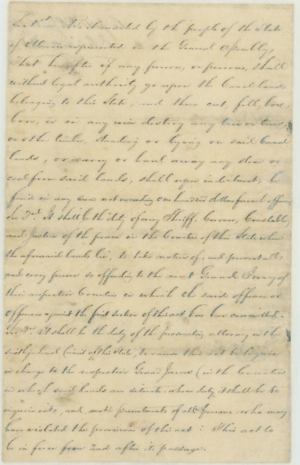 Sect 1st Be it enacted by the people of the State
of Illinois represented in the General Assembly,
That hereafter if any person, or persons, shall
without legal authority go upon the Canal lands
belonging to this State, and there cut, fell, box,
bore, or in any wise destroy any tree or trees,
or other timber, standing or lying on said Canal
lands, or carry or haul away any stone or
coal from said lands, shall upon indictment, be
fined in any sum not exceeding one hundred dollars for each offence
Sec 2d It shall be the duty of any Sheriff, Coroner, Constable
and Justice of the peace in the Counties of this State where
the aforesaid lands lie, to take notice of, and present all
and every person so offending to the next Grand Jury of
their respective Counties in which the said offence or
offences against the first section of this act has been committed
Sec 3d It shall be the duty of the prosecuting attorney in the
Circuit of this State, to cause this act to be given
in charge to the respective Grand Juries (in the Counties
in which said lands are situate whose duty it shall be to
enquire into, and make presentments of all persons who may
have violated the provisions of this act: This act to
be in force from and after its passage.